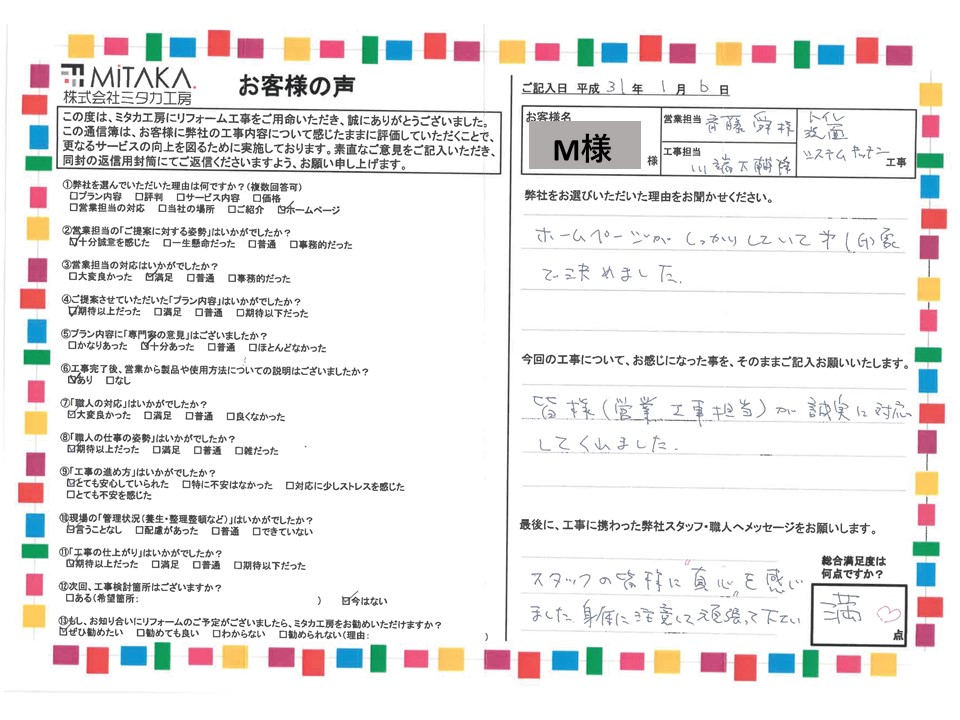 MiTAKA
株式会社ミタカ工房
お客様の声
この度は、ミタカ工房にリフォーム工事をご用命いただき、誠にありがとうございました。
この通信簿は、お客様に弊社の工事内容について感じたままに評価していただくことで、
更なるサービスの向上を図るために実施しております。素直なご意見をご記入いただき、
同封の返信用封筒にてご返信くださいますよう、お願い申し上げます。
①弊社を選んでいただいた理由は何ですか？(複数回答可)
□プラン内容 □評判 □サービス内容 □価格
□営業担当の対応 □当社の場所 □ご紹介 ☑ホームページ
②営業担当の「ご提案に対する姿勢」はいかがでしたか？
☑十分誠意を感じた □一生懸命だった □普通 □事務的だった
③営業担当の対応はいかがでしたか？
□大変良かった ☑満足 □普通 □事務的だった
④ご提案させていただいた「プラン内容」はいかがでしたか？
☑期待以上だった □満足 □普通 □期待以下だった
⑤プラン内容に「専門家の意見」はございましたか？
□かなりあった ☑十分あった □普通 □ほとんどなかった
⑥工事完了後、営業から製品や使用方法についての説明はございましたか？
☑あり □なし
⑦「職人の対応」はいかがでしたか？
☑大変良かった □満足 □普通 □良くなかった
⑧「職人の仕事の姿勢」はいかがでしたか？
☑期待以上だった □満足 □普通 □雑だった
⑨「工事の進め方」はいかがでしたか？
☑とても安心していられた □特に不安はなかった □対応に少しストレスを感じた
□とても不安を感じた
⑩現場の「管理状況(養生・整理整頓など)」はいかがでしたか？
☑言うことなし □配慮があった □普通 □できていない
⑪「工事の仕上がり」はいかがでしたか？
☑期待以上だった □満足 □普通 □期待以下だった
⑫次回、工事検討箇所はございますか？
□ある(希望箇所: ) ☑今はない
⑬もし、お知り合いにリフォームのご予定がございましたら、ミタカ工房をお勧めいただけますか？
☑ぜひ勧めたい □勧めても良い □わからない □勧められない(理由: )
ご記入日 平成 31 年 1 月 6 日
お客様名
M様
様
営業担当 斉藤 舜 様
工事担当 川端大輔 様
トイレ
設置
システムキッチン 工事
弊社をお選びいただいた理由をお聞かせください。
ホームページがしっかりしていて才1印象
で決めました.
今回の工事について、お感じになった事を、そのままご記入お願いいたします。
皆様(営業 工事担当)が誠実に対応
してくれました.
最後に、工事に携わった弊社スタッフ・職人へメッセージをお願いします。
スタッフの皆様に"真心"を感じ
ました 身体に注意して頑張って下さい
総合満足度は
何点ですか？
満 ♡ 点